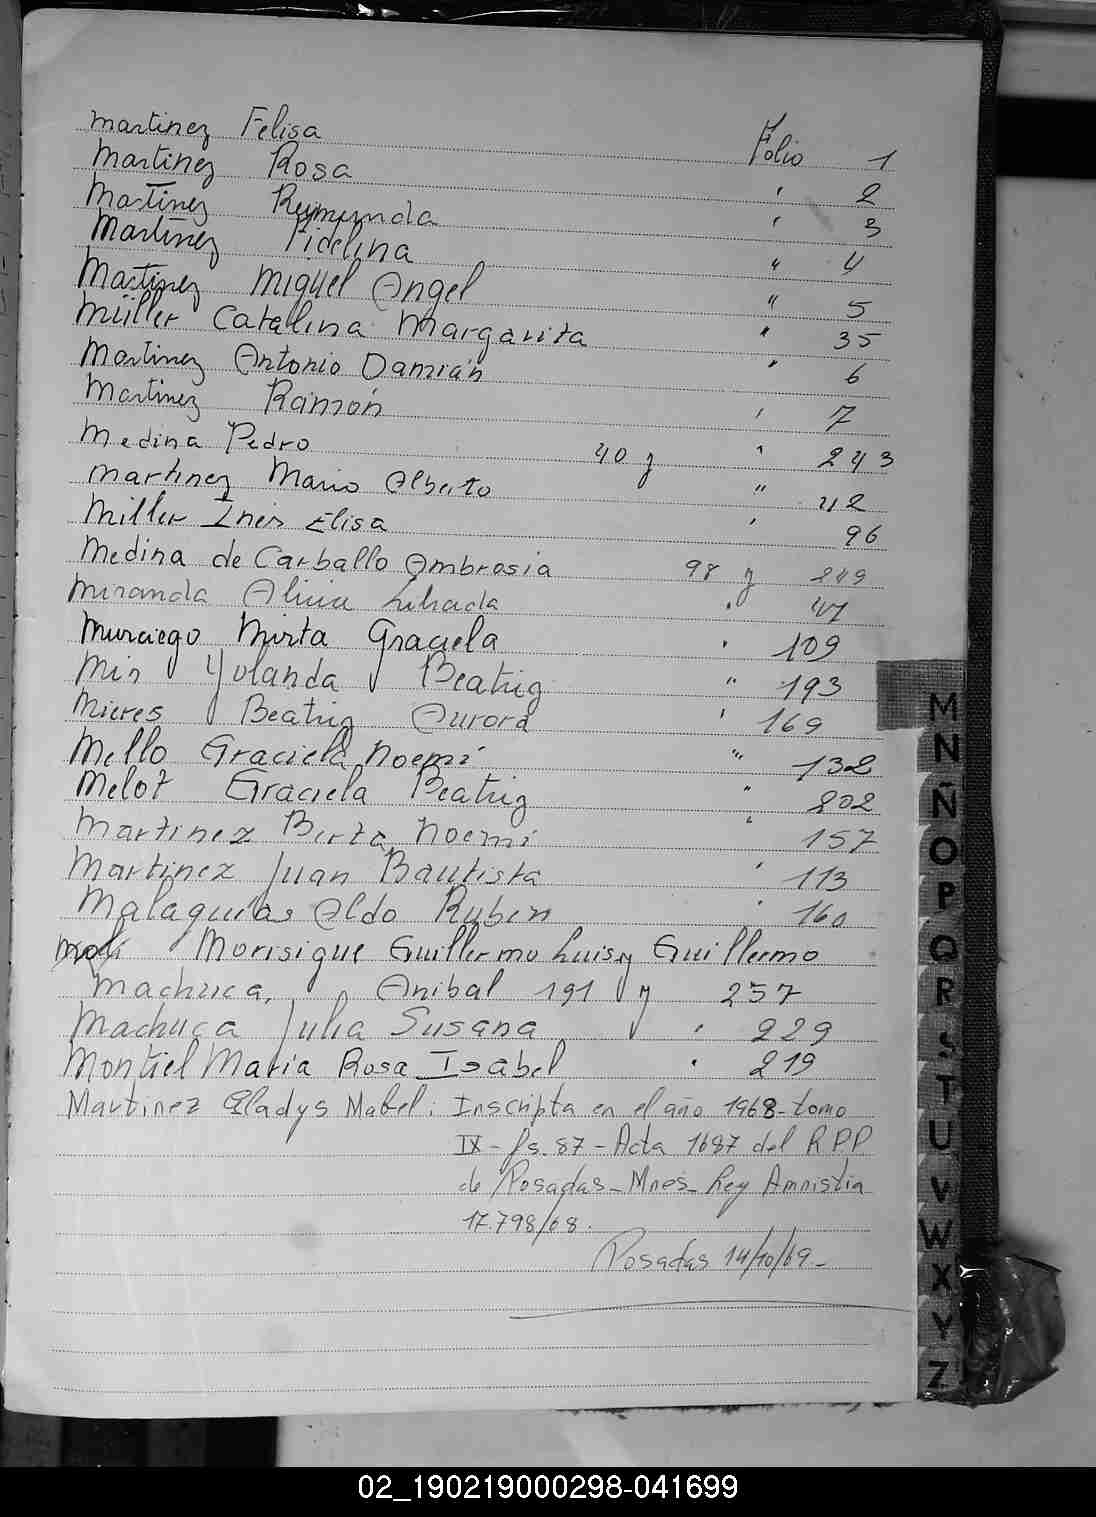 Martinez Felisa Folio 1
Martinez Rosa " 2
Martinez Rymunda " 3
Martinez Fidelina " 4
Martinez Miguel Angel " 5
Müller Catalina Margarita " 35
Martinez Antonio Damián " 6
Martinez Ramón " 7
Medina Pedro 40 y " 243
Martinez Mario Alberto " 42
Miller Ines Elisa " 96
Medina de Carballo Ambrosia 98 y 249
Miranda Alicia " 47
Murciego Mirta Graciela " 109
Min Yolanda Beatriz " 193
Mieres Beatriz Aurora " 169
Mello Graciela Noemí " 132
Melot Graciela Beatriz " 202
Martinez Berta Noemí " 157
Martinez Juan Bautista " 113
Malaquias Aldo Ruben " 160
Morisigue Guillermo Luis y Guillermo
Machuca, Anibal 191 y 257
Machuca Julia Susana " 229
Montiel Maria Rosa Isabel " 219
Martinez Gladys Mabel: Inscripta en el año 1968- tomo
IX- fs. 87 - Acta 1687 del R.P.P
de Posadas - Mnes- Ley Amnistia
17.798/68.
Posadas 14/10/69.-
M
N
Ñ
O
P
Q
R
S
T
U
V
W
X
Y
Z
02_190219000298-041699